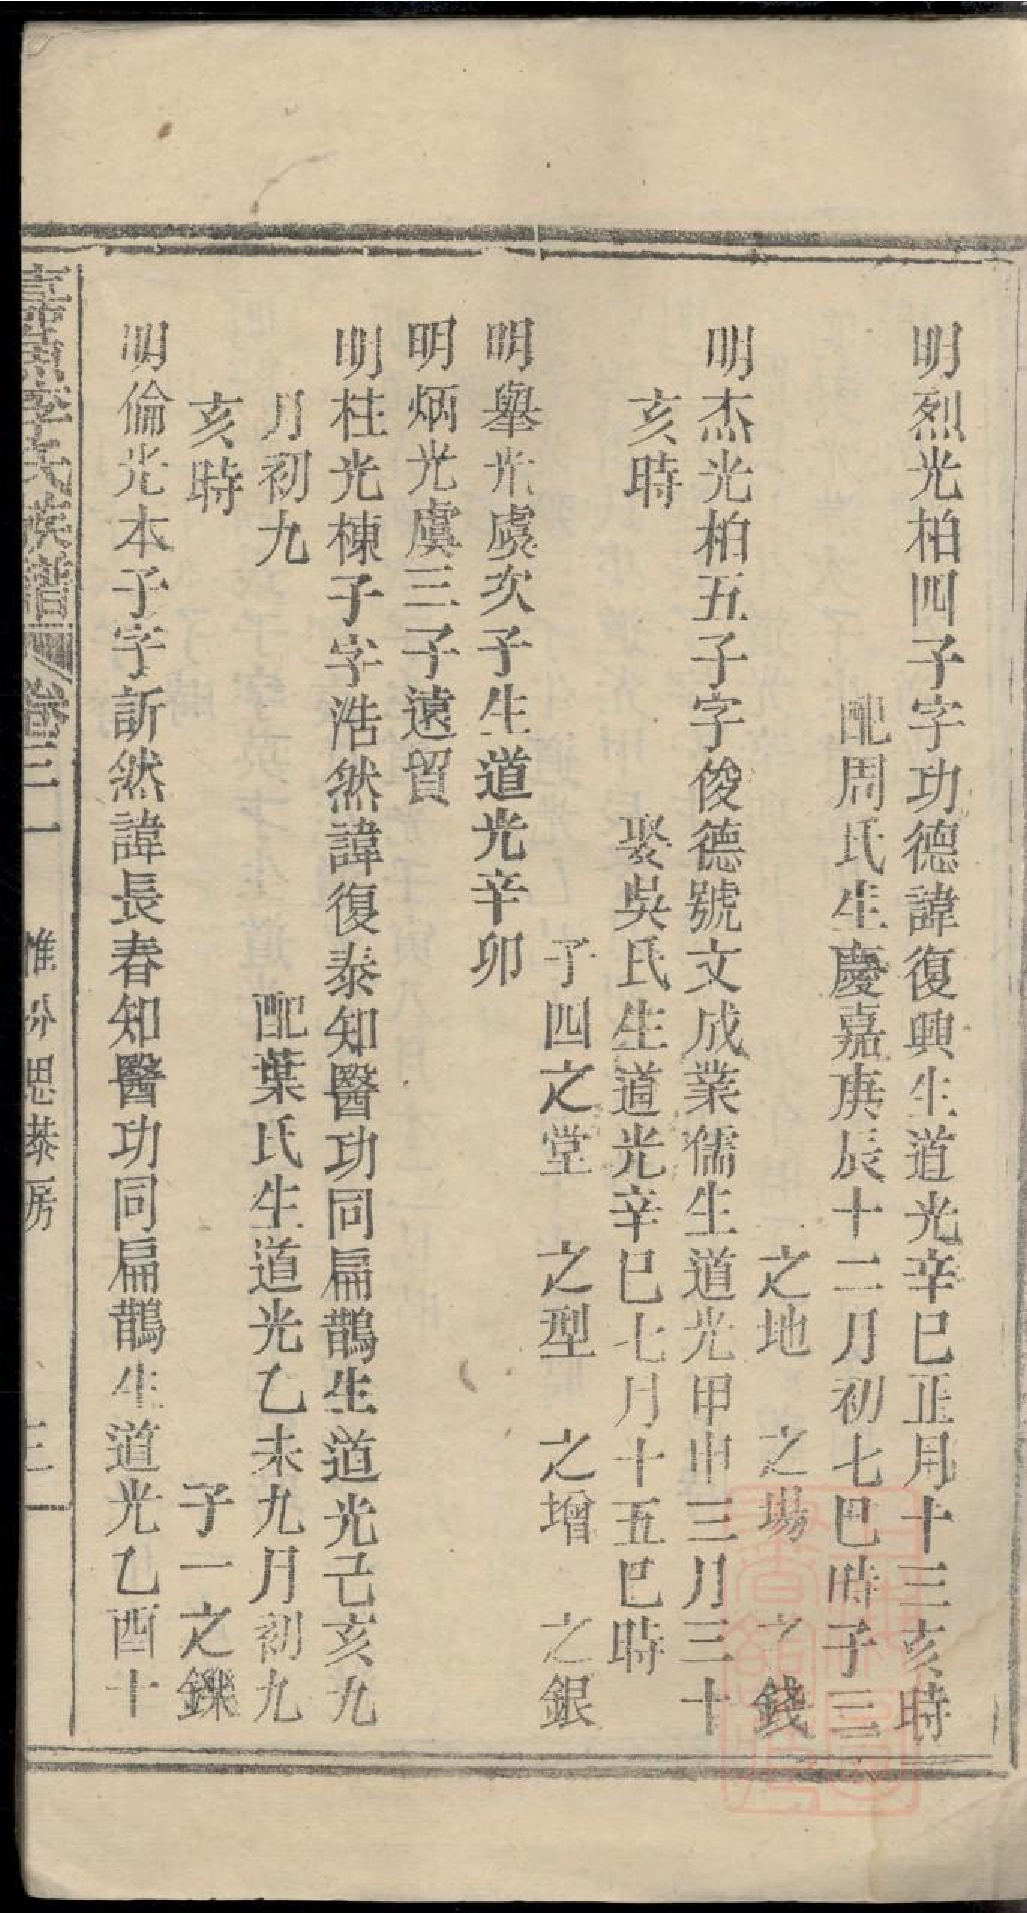 明烈光柏四子字功德諱復興生道光辛巳正月十三亥時
配周氏生慶嘉庚辰十二月初七巳時子三
之地 之場 之錢
明杰光柏五子字俊德號文成業儒生道光甲申三月三十
亥時 娶吳氏生道光辛巳七月十五巳時
子四之堂 之型 之增 之銀
明舉光虞次子生道光辛卯
明炳光虞三子遠貿
明柱光棟子字浩然諱復泰知醫功同扁鵲生道光己亥九
月初九 配葉氏生道光乙未九月初九
亥時 子一之鏷
明倫光本子字訢然諱長春知醫功同扁鵲生道光乙酉十
李氏族譜 卷三一 惟 思恭房 三一